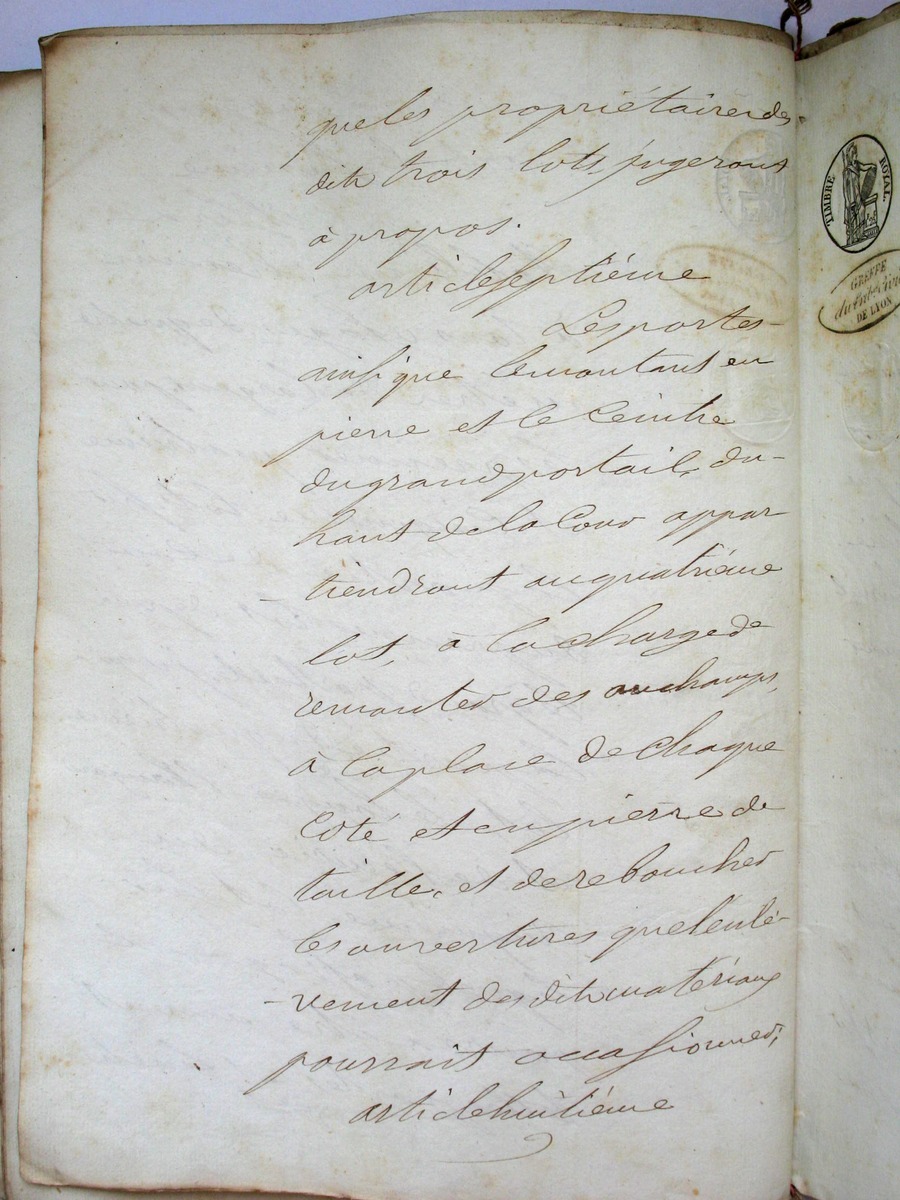 que les propriétaires des
dits trois lots, jugeront
à propos.
article septième
Les portes
ainsi que le montant en
pierre et le Ceintre
du grand portail, du
haut de la Cour appar-
tiendront au quatrième
lot, à la charge de
remonter des
à la place de chaque
Coté et en pierre de
taille, et de reboucher
les ouvertures que l'enlè-
-vement des dits matériaux
pourrait occasionner;
article huitième
TIMBRE ROYAL.
GREFFE
DE LYON